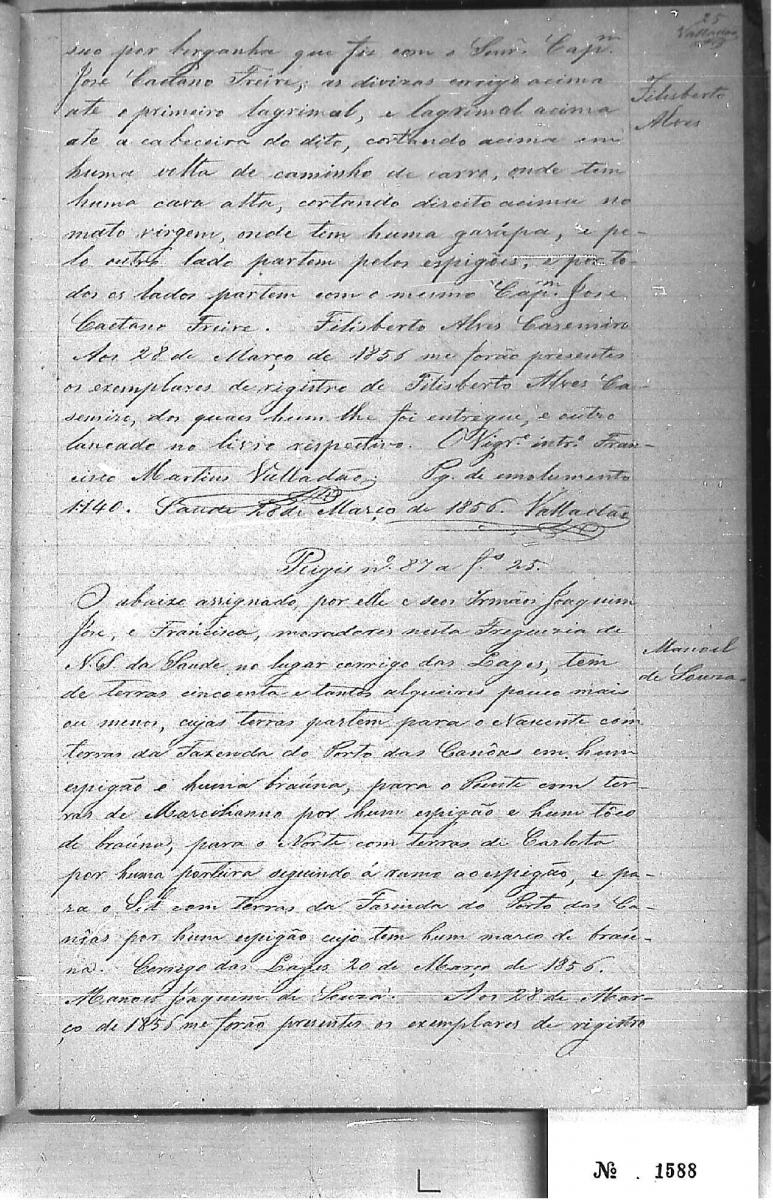 25
Valladão
suo por berganha que fez com o Senr. Capm.
José Caetano Freire; as divizas corrigo acima
ate o primeiro lagrimal, e lagrimal acima
ate a cabeceira do dito, cortando acima em
huma volta de caminho de carro, onde tem
huma cava alta, cortando direito acima no
mato virgem, onde tem huma garápa, e pe-
lo outro lado partem pelos espigões, e por to-
dos os lados partem com o mesmo Capm. José
Caetano Freire. Filisberto Alves Casemiro
Aos 28 de Março de 1856 me forão presentes
os exemplares de registro de Filisberto Alves Ca-
semiro, dos quaes hum lhe foi entregue, e outro
lancado no livro respectivo. O Vigr.º intr.º Fran-
cisco Martins Valladão. Pg. de emolumento
1740. Saude 28 de Março de 1856. Valladão
Filisberto
Alves
Regis nº. 87 a fs. 25.
O abaixo assignado, por elle e seos Irmãos Joaquim
José, e Francisca, moradores nesta Freguezia de
N. S. da Saude no lugar corrigo das Lages, tem
de terras cincoenta e tantos alqueires pouco mais
ou menos, cujas terras partem para o Nascente com
terras da Fazenda do Porto das Canôas em hum
espigão e huma braúna, para o Poente com ter-
ras de Marcilianno por hum espigão e hum tôco
de braúna, para o Norte com terras de Carlota
por huma porteira seguindo á rumo ao espigão, e pa-
ra o Sul com terras da Fazenda do Porto das Ca-
nôas por hum espigão cujo tem hum marco de braú-
na. Corrego das Lages 20 de Março de 1856.
Manoel Joaquim de Souza. Aos 28 de Mar-
ço de 1856 me forão presentes os exemplares de registro
Manoel
de Souza
Nº . 1588